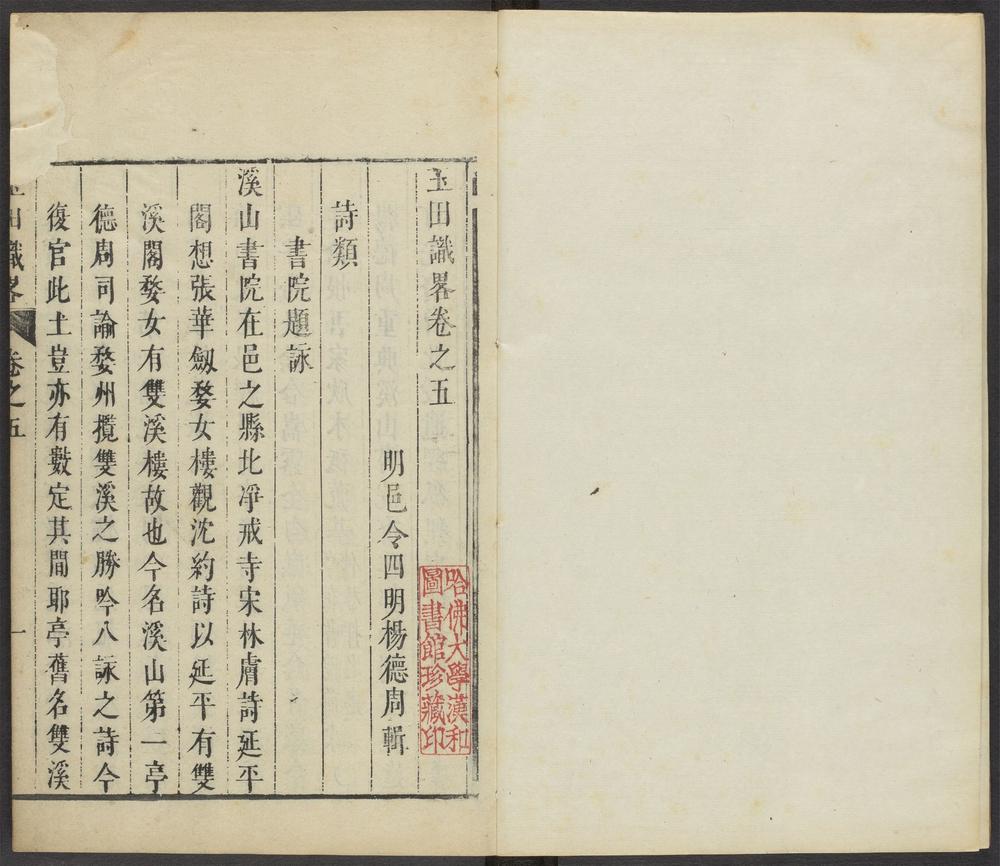 玉田識畧卷之五
明邑令四明楊德周輯
詩類
書院題詠
溪山書院在邑之縣北凈戒寺宋林膚詩延平
閣想張華劔婺女樓觀沈約詩以延平有雙
溪閣婺女有雙溪樓故也今名溪山第一亭
德周司諭婺州攬雙溪之勝吟八詠之詩今
復官此土豈亦有數定其間耶亭舊名雙溪
玉田識畧
卷之五
一
哈佛大學漢和
圖書館珍藏印